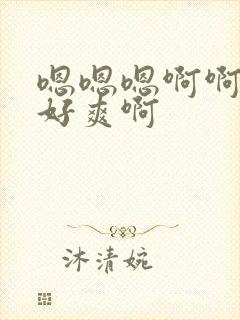 嗯嗯嗯啊啊
好爽啊
沐清婉